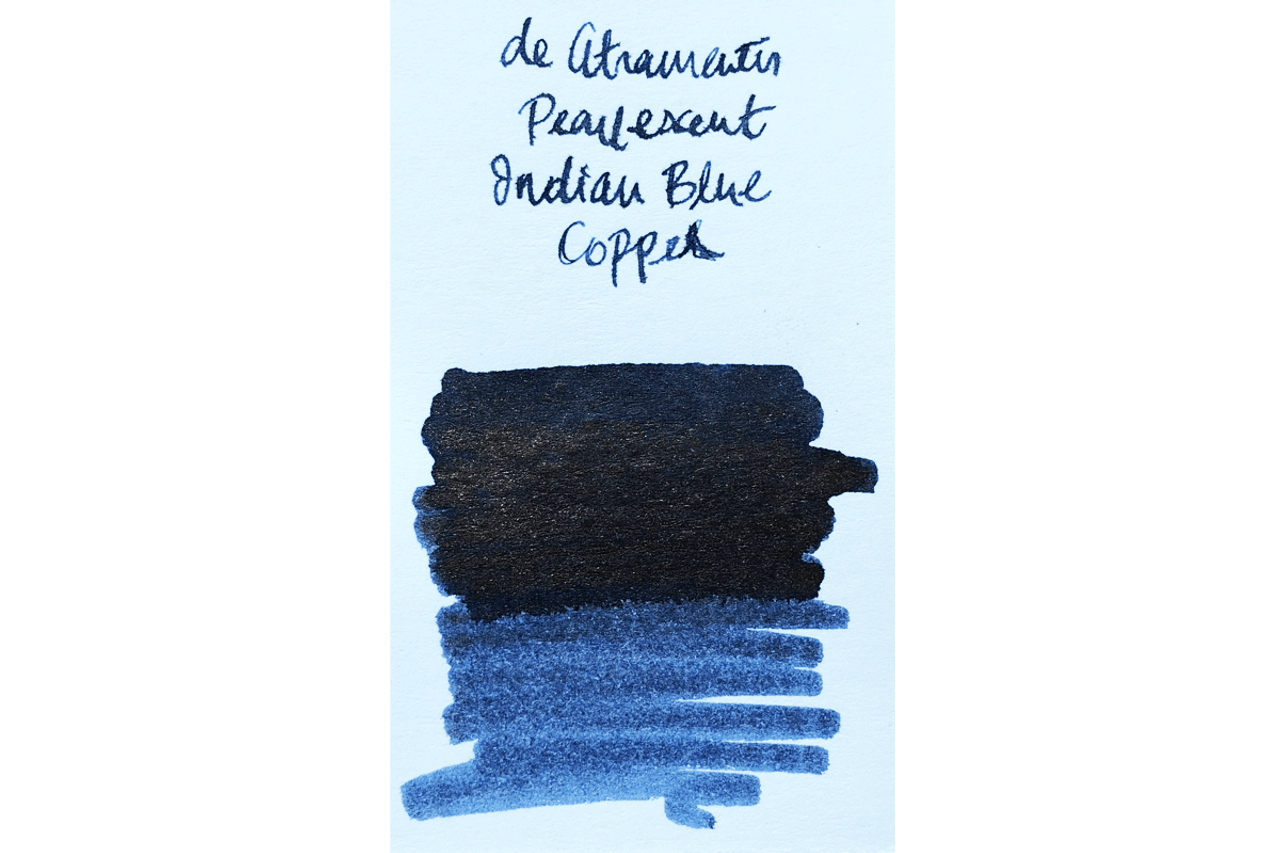 de Atramentis
Pearlescent
Indian Blue
Copper